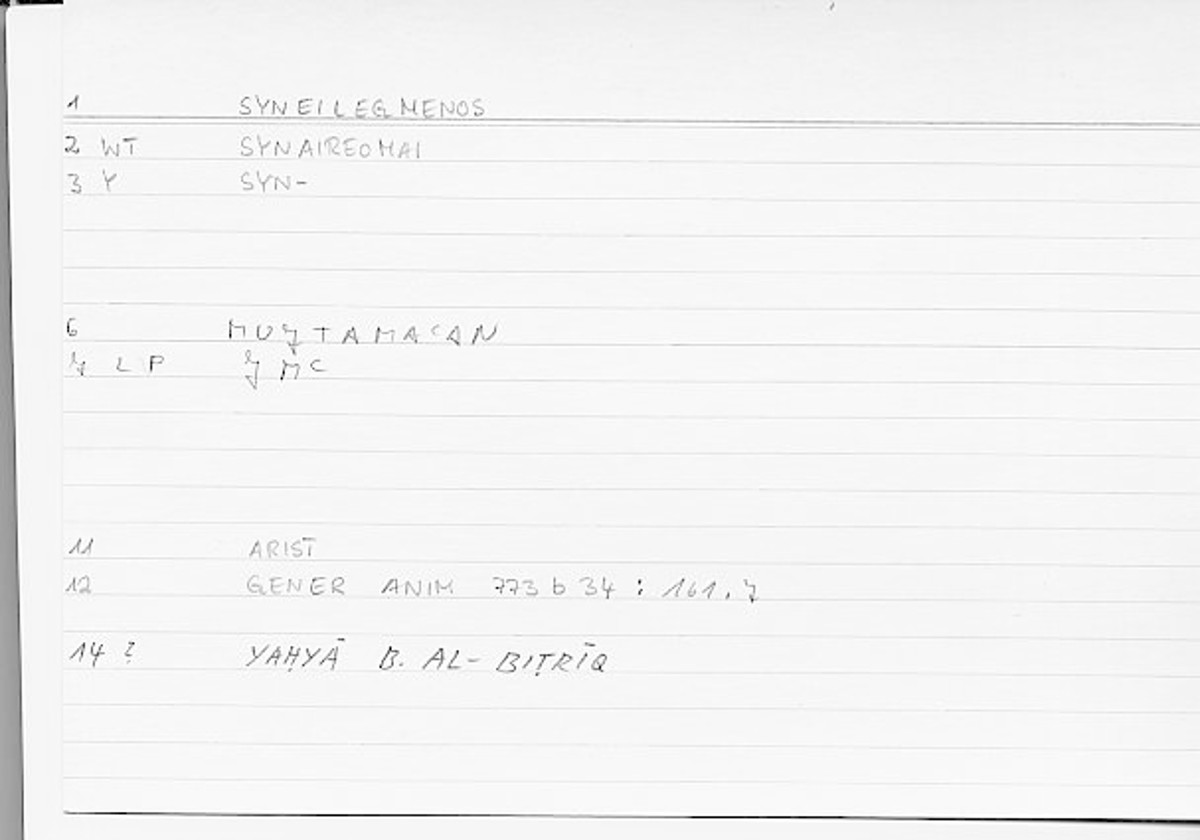 1 SYNEILEGMENOS
2 WT SYNAIREOMAI
3 Y SYN-
6 MUǦTAMAʿAN
7 L P ǦMʿ
11 ARIST
12 GENER ANIM 773 b 34 : 161,7
14 ? YAḤYĀ B. AL-BIṬRĪQ